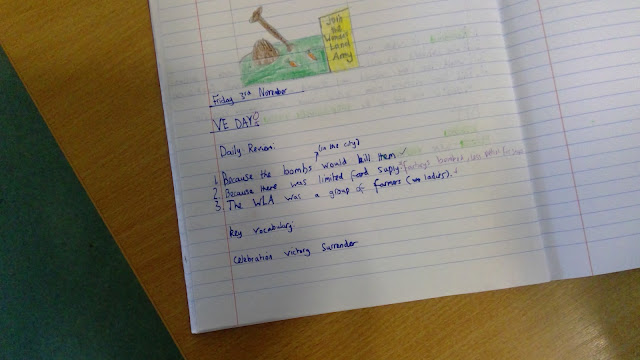 Join
the
Women's
Land
Army
Friday 3rd November
VE DAY:
Daily Review:
(in the city)
1. Because the bombs would kill them ✓
2. Because there was limited food suply
3. The WLA was a group of farmers (two ladies).
Key vocabulary:
Celebration victory Surrender